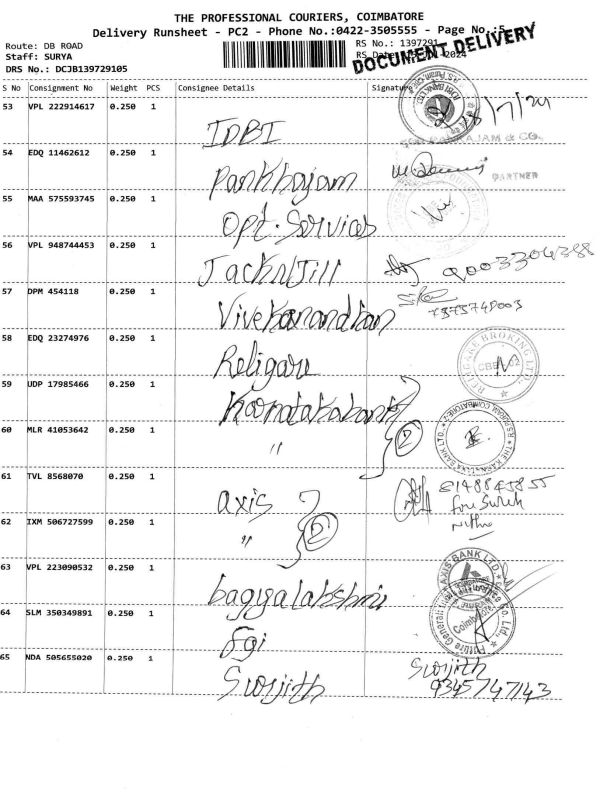 THE PROFESSIONAL COURIERS, COIMBATORE
Delivery Runsheet - PC2 - Phone No.:0422-3505555 - Page No.:5
Route: DB ROAD
RS No.: 1397291
Staff: SURYA
DOCUMENT DELIVERY
DRS No.: DCJB139729105
S No Consignment No Weight PCS Consignee Details Signature
53 VPL 222914617 0.250 1
IDBI
54 EDQ 11462612 0.250 1
PARTNER
Pankhajam
55 MAA 575593745 0.250 1
Opt. Services
56 VPL 948744453 0.250 1
Jack n Jill 9003304388
57 DPM 454118 0.250 1
Vivekanandhan
58 EDQ 23274976 0.250 1
RELIGARE BROKING LTD.
Religare
59 UDP 17985466 0.250 1
Karnatakabank
60 MLR 41053642 0.250 1
" 2
61 TVL 8568070 0.250 1
axis
62 IXM 506727599 0.250 1
" 2
63 VPL 223090532 0.250 1
AXIS BANK LTD.
bagyalakshmi
64 SLM 350349891 0.250 1
Coimbatore
Fgi
65 NDA 505655020 0.250 1
Surjith
Surjith
9345747143